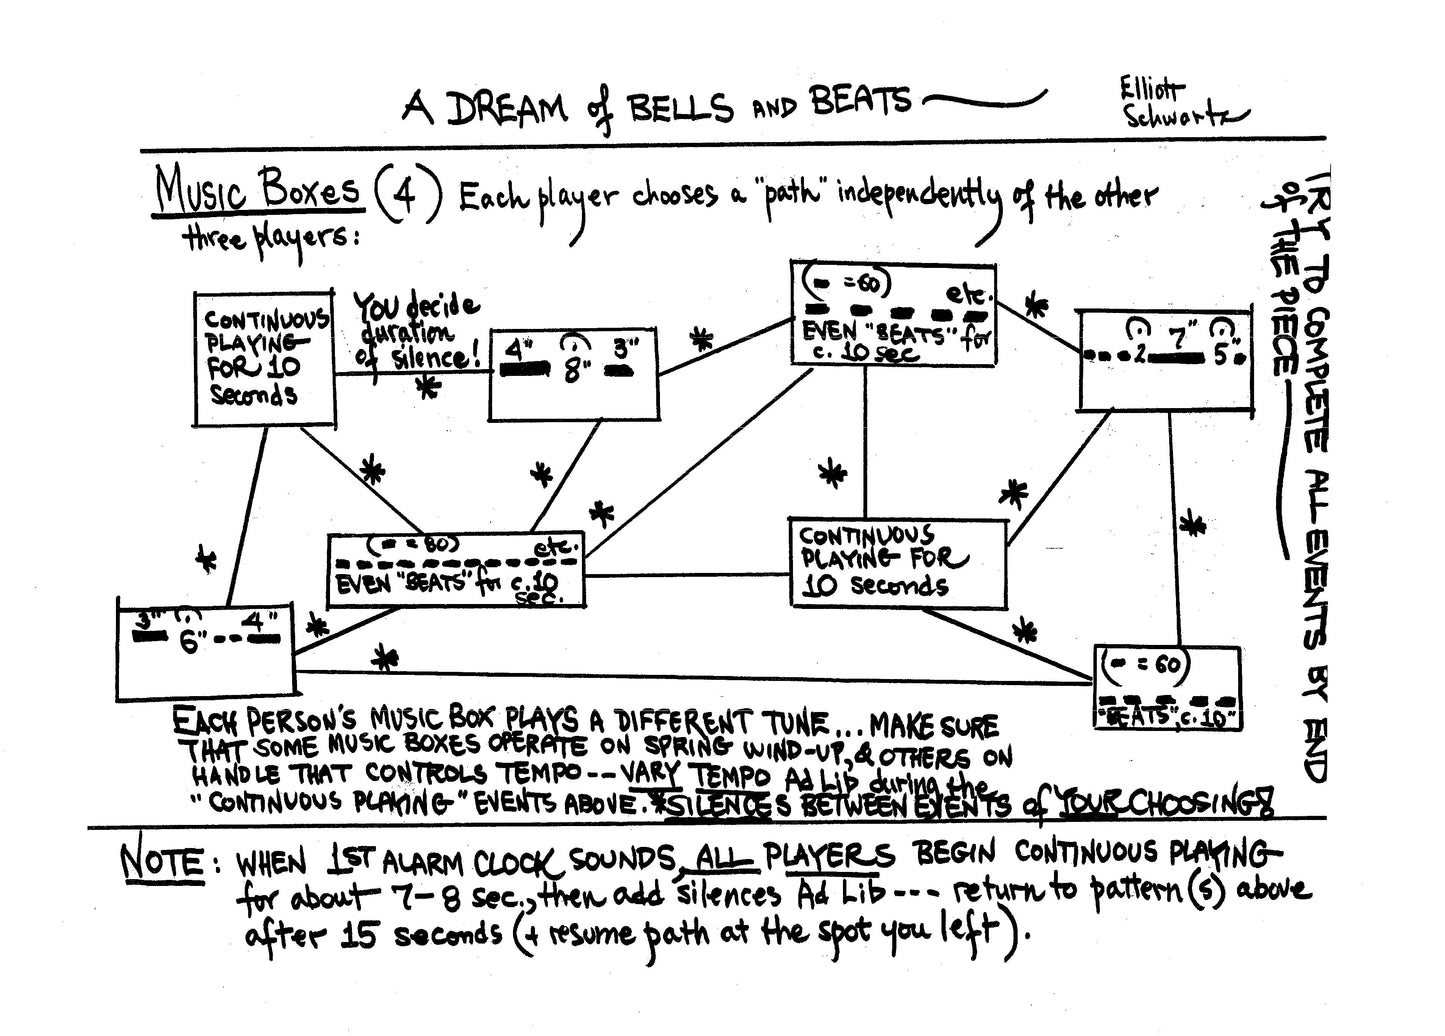 A DREAM of BELLS AND BEATS
Elliott
Schwartz
MUSIC BOXES (4) Each player chooses a "path" independently of the other
three players:
CONTINUOUS
PLAYING
FOR 10
Seconds
YOU decide
duration
of silence!
*
4" 8" 3"
*
( = 60)
etc.
EVEN "BEATS" for
c. 10 sec
*
2 7" 5"
*
*
*
*
*
*
*
( = 80)
etc.
EVEN "BEATS" for c. 10
sec.
CONTINUOUS
PLAYING FOR
10 seconds
3" 6" 4"
*
*
*
( = 60)
"BEATS", c. 10"
EACH PERSON'S MUSIC BOX PLAYS A DIFFERENT TUNE... MAKE SURE
THAT SOME MUSIC BOXES OPERATE ON SPRING WIND-UP, & OTHERS ON
HANDLE THAT CONTROLS TEMPO -- VARY TEMPO Ad Lib during the
"CONTINUOUS PLAYING" EVENTS ABOVE. *SILENCES BETWEEN EVENTS of YOUR CHOOSING!
NOTE: WHEN 1ST ALARM CLOCK SOUNDS, ALL PLAYERS BEGIN CONTINUOUS PLAYING
for about 7-8 sec., then add silences Ad Lib --- return to pattern(s) above
after 15 seconds (+ resume path at the spot you left).
TRY TO COMPLETE ALL EVENTS BY END
of THE PIECE